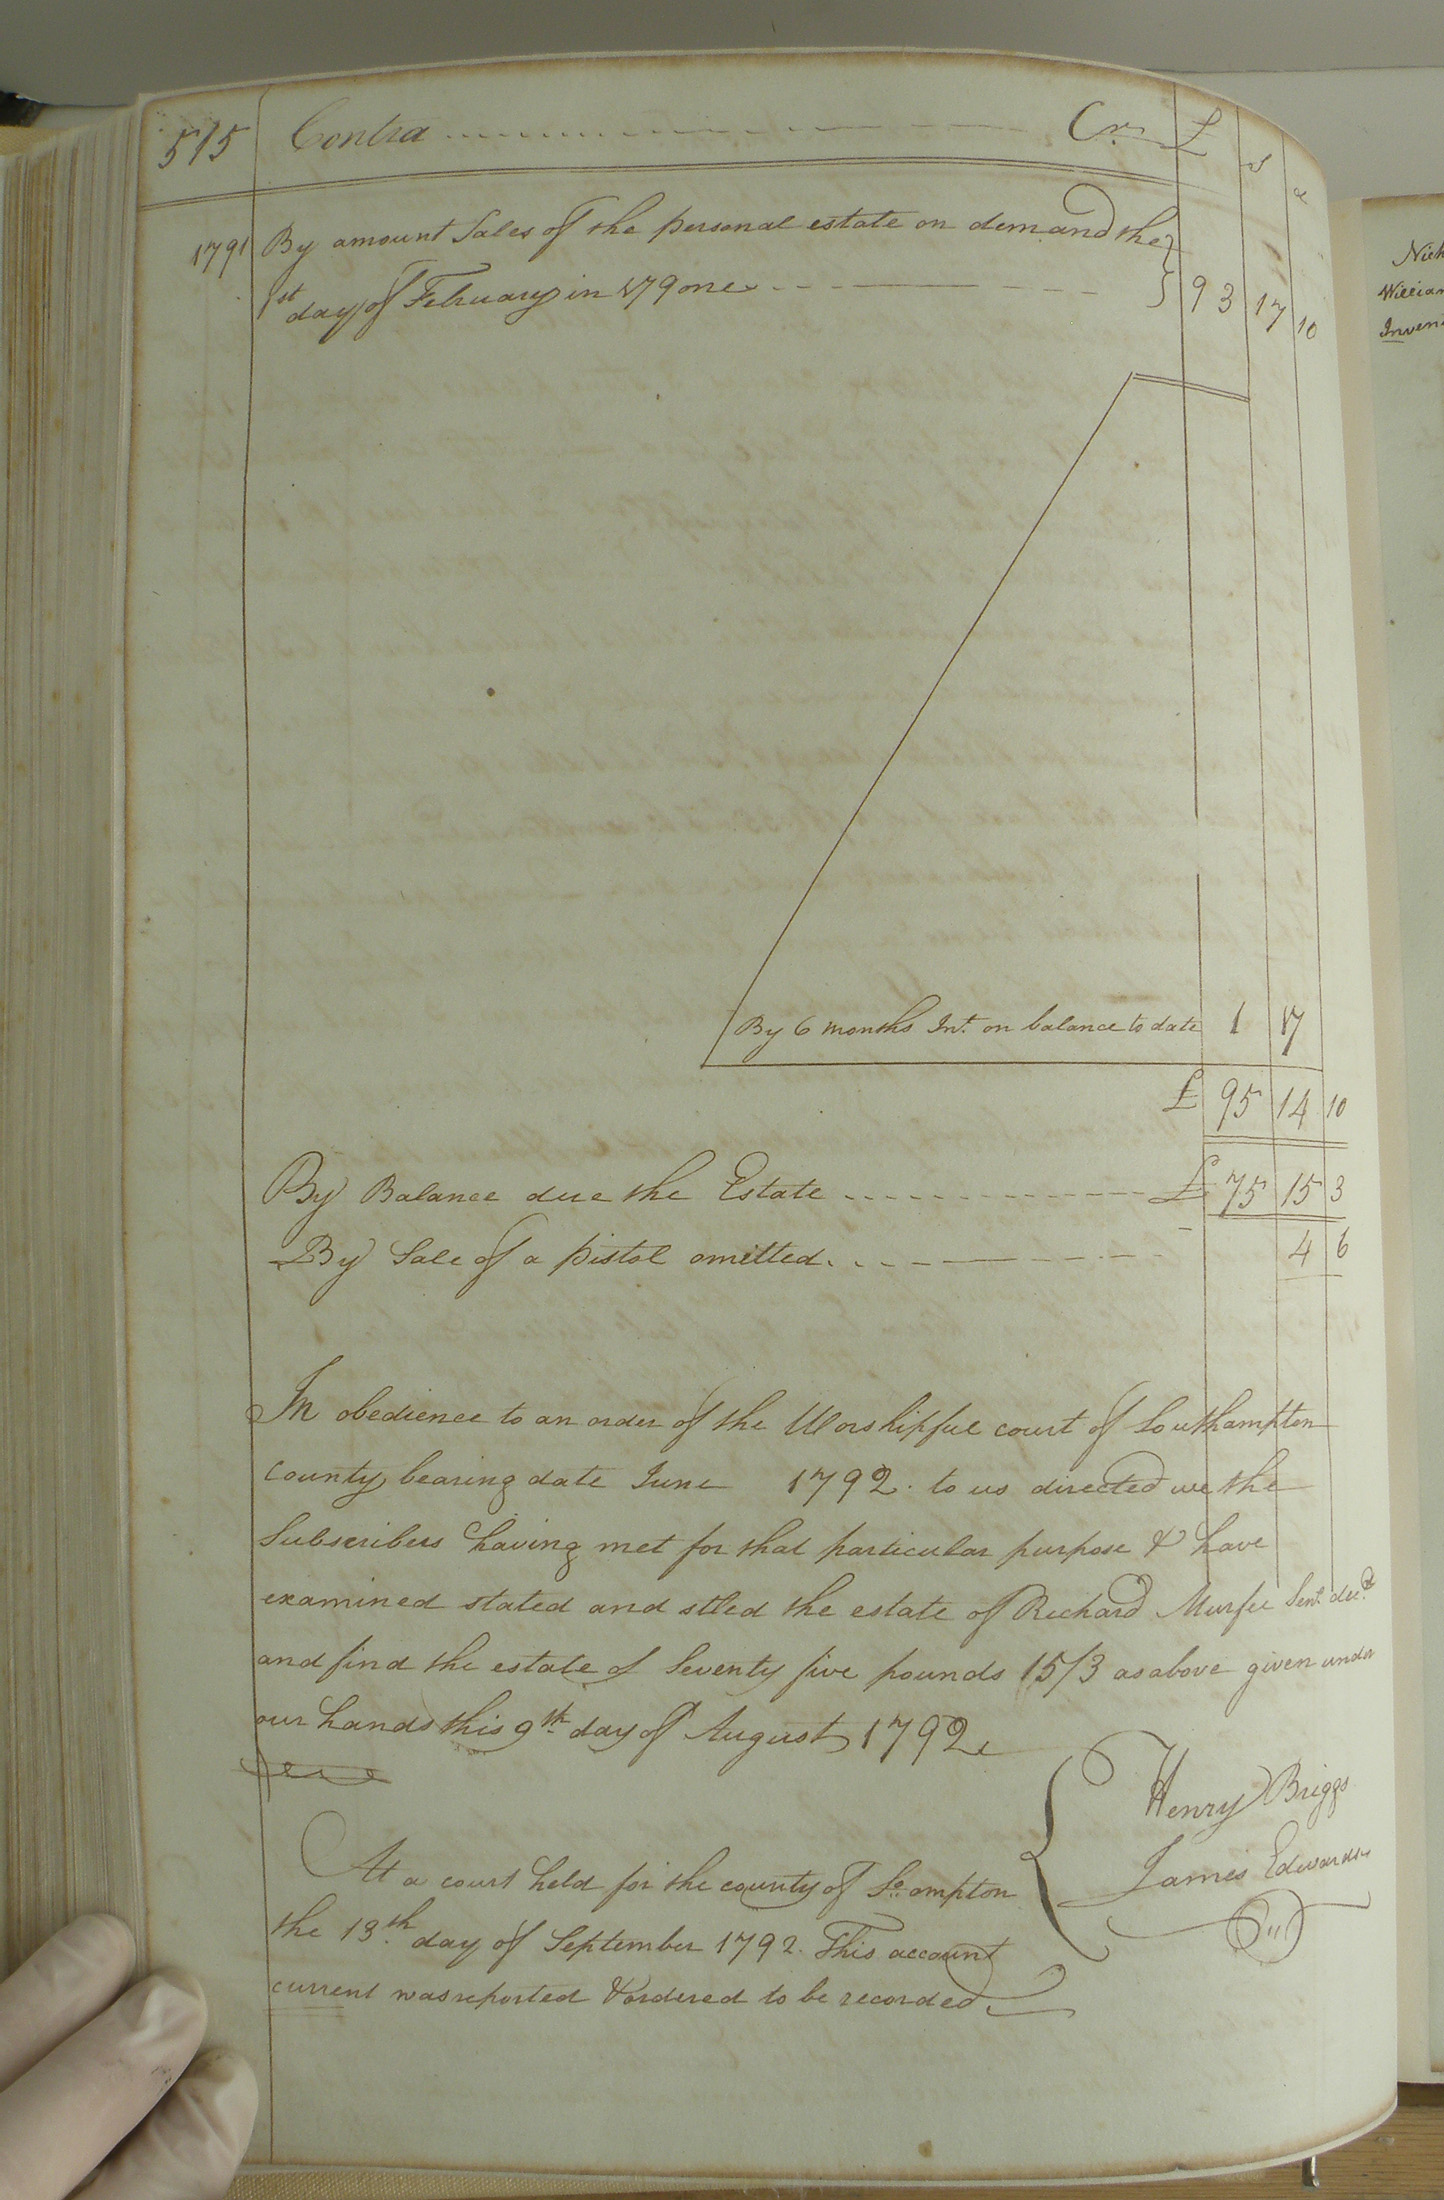 515 Contra Cr. £ s d
1791 By amount Sales of the personal estate on demand the
1st day of February in 179one 93 17 10
By 6 months Int. on balance to date 1 17
£ 95 14 10
By Balance due the Estate £ 75 15 3
By Sale of a pistol omitted 4 6
In obedience to an order of the Worshipful court of Southampton
county bearing date June 1792. to us directed we the
Subscribers having met for that particular purpose & have
examined stated and stled the estate of Richard Murfee Senr. decd.
and find the estate of Seventy five pounds 15/3 as above given under
our hands this 9th day of August 1792
Henry Briggs
James Edwards
At a court held for the county of So.ampton
the 13th day of September 1792. This account
current was reported & ordered to be recorded
Nich
William
Inven